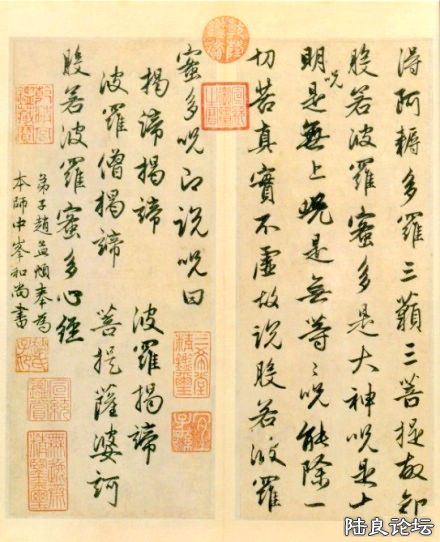 得阿耨多羅三藐三菩提故知
般若波羅蜜多是大神呪是大
明呪是無上呪是無等〻呪能除一
切苦真實不虛故說般若波羅
蜜多呪即說呪曰
揭諦揭諦 波羅揭諦
波羅僧揭諦 菩提薩婆訶
般若波羅蜜多心經
弟子趙孟頫奉為
本師中峯和尚書
三希堂精鑑璽
宜子孫
陆良论坛